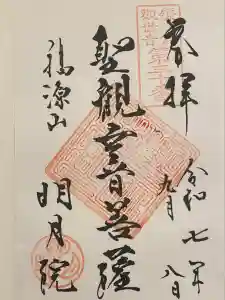 奉拝
令和七年
九月八日
聖観世音菩薩
福源山
明月院